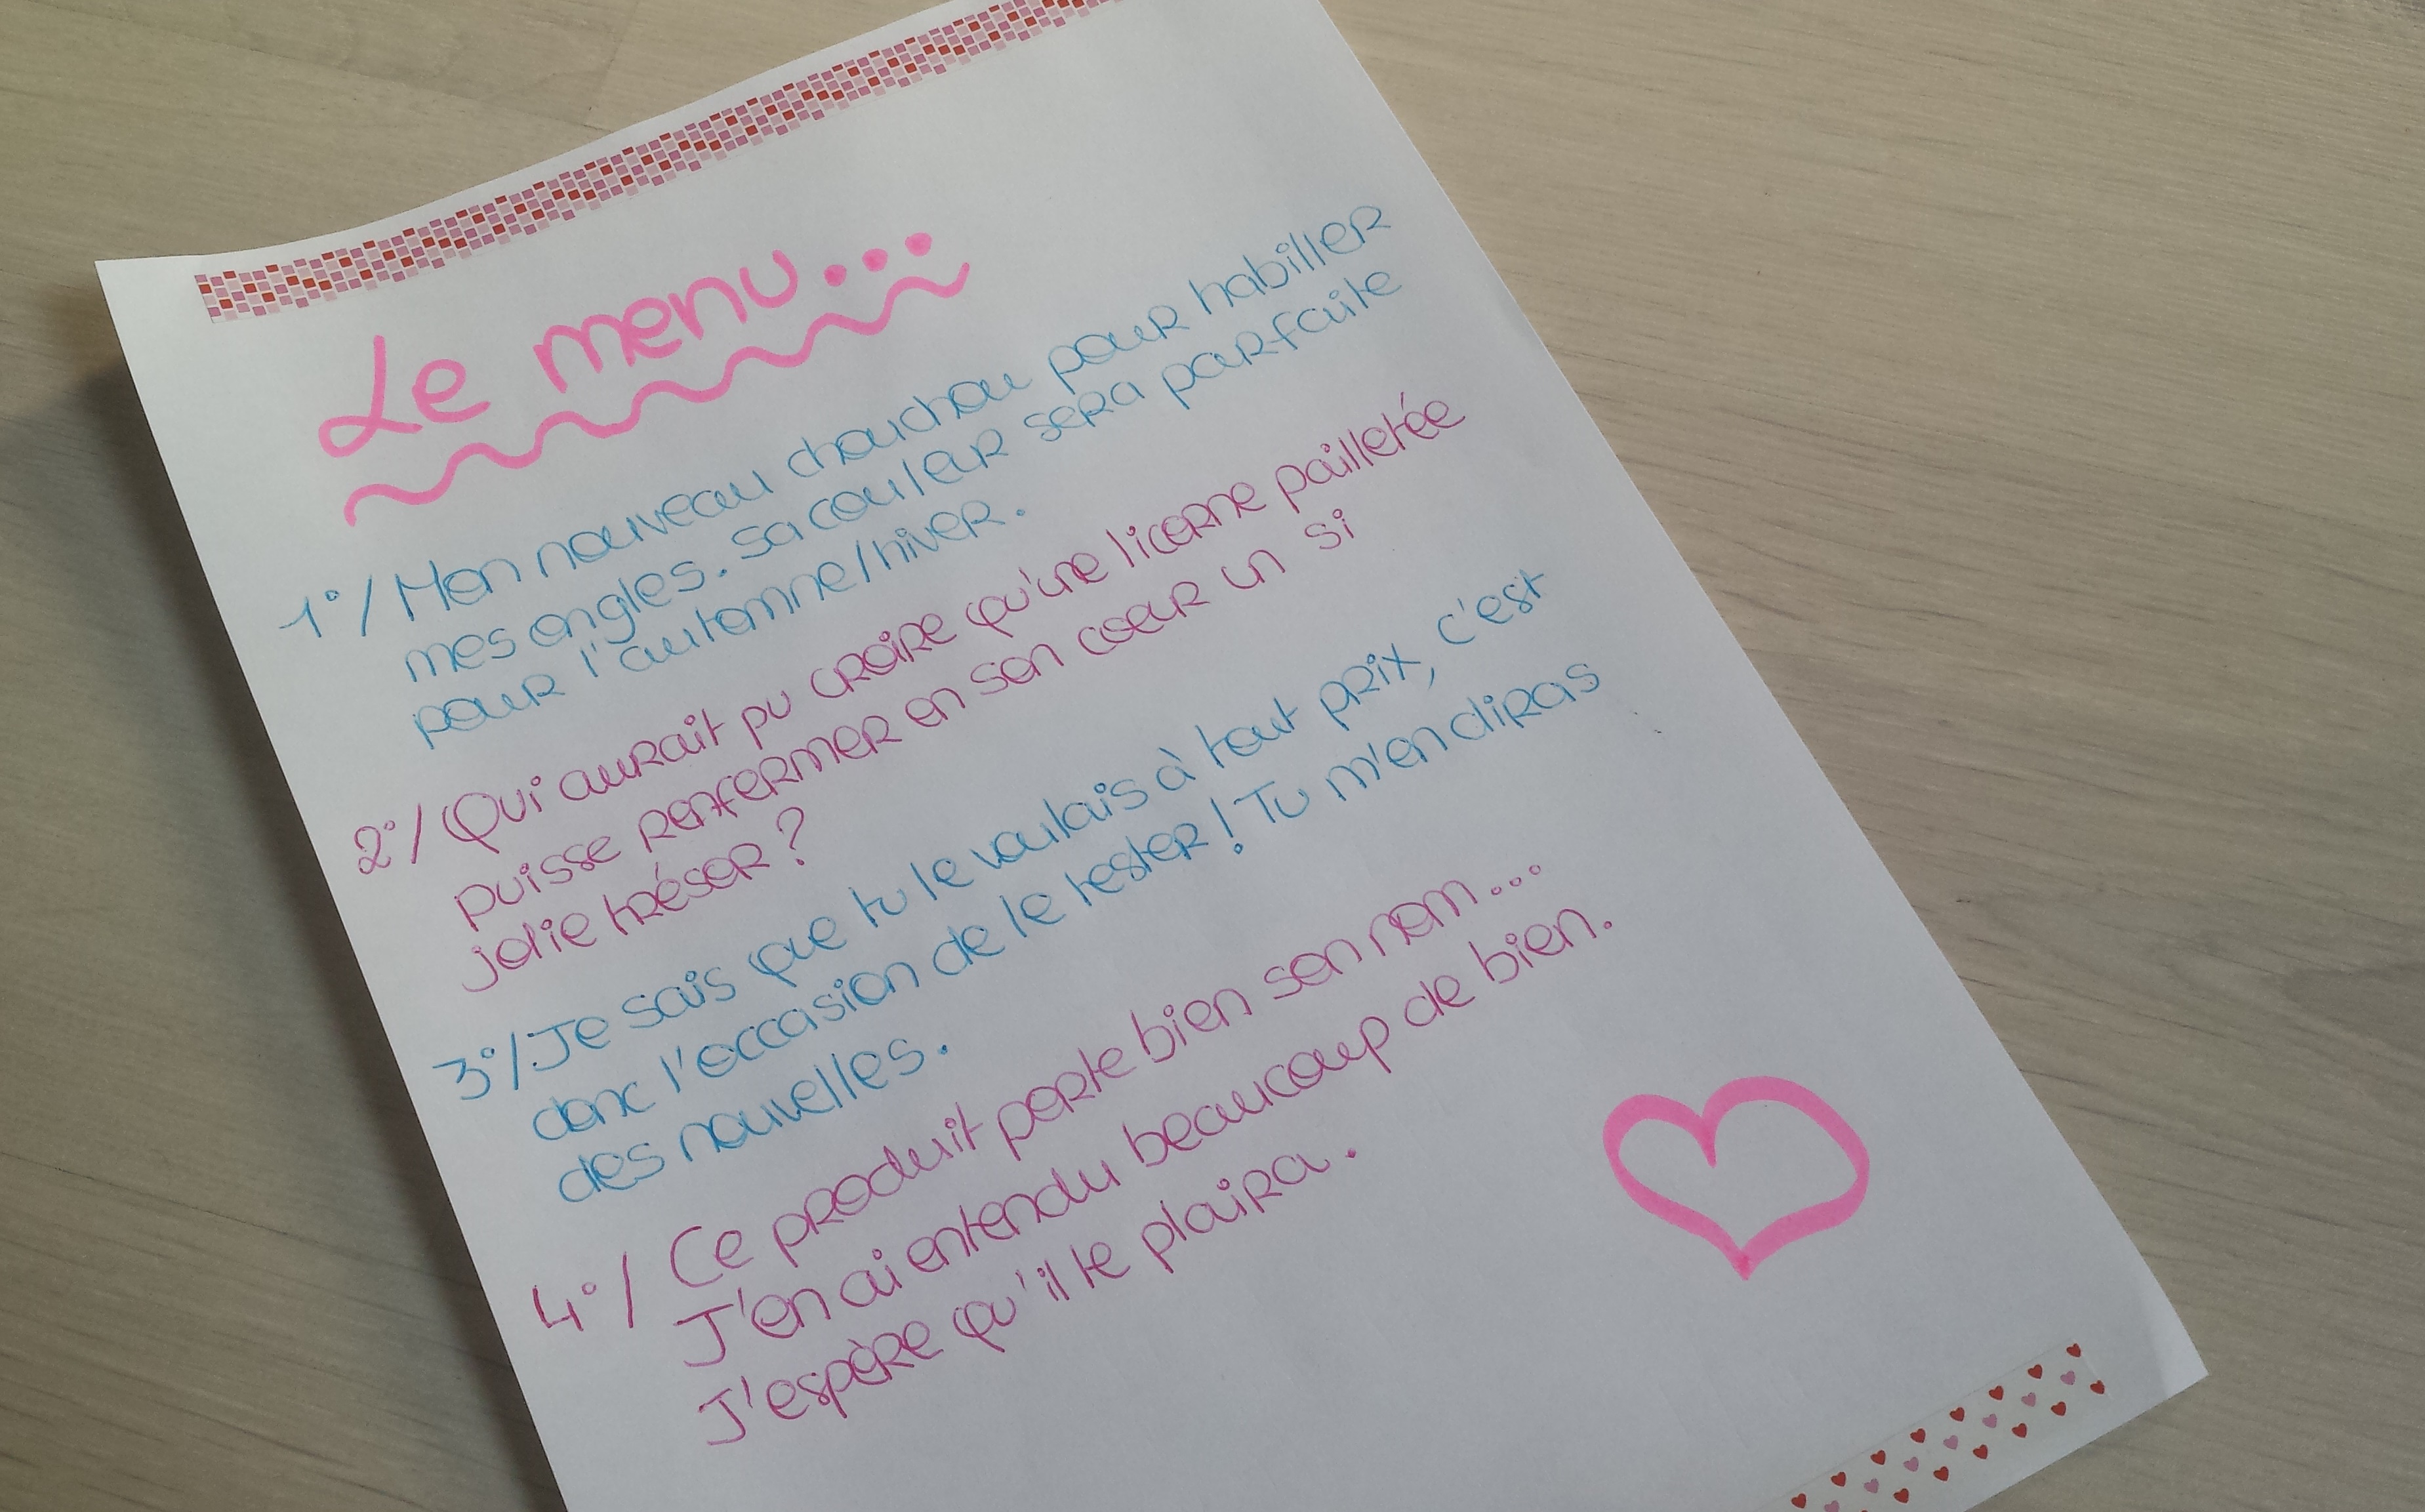 Le menu...
1°/ Mon nouveau chouchou pour habiller
mes ongles. Sa couleur sera parfaite
pour l'automne/hiver.
2°/ Qui aurait pu croire qu'une licorne pailletée
puisse renfermer en son coeur un si
jolie trésor ?
3°/ Je sais que tu le voulais à tout prix, c'est
donc l'occasion de le tester ! Tu m'en diras
des nouvelles.
4°/ Ce produit porte bien son nom...
J'en ai entendu beaucoup de bien.
J'espère qu'il te plaira.